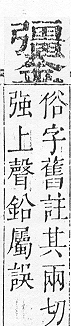 俗字舊註其兩切
強上聲鉛屬誤